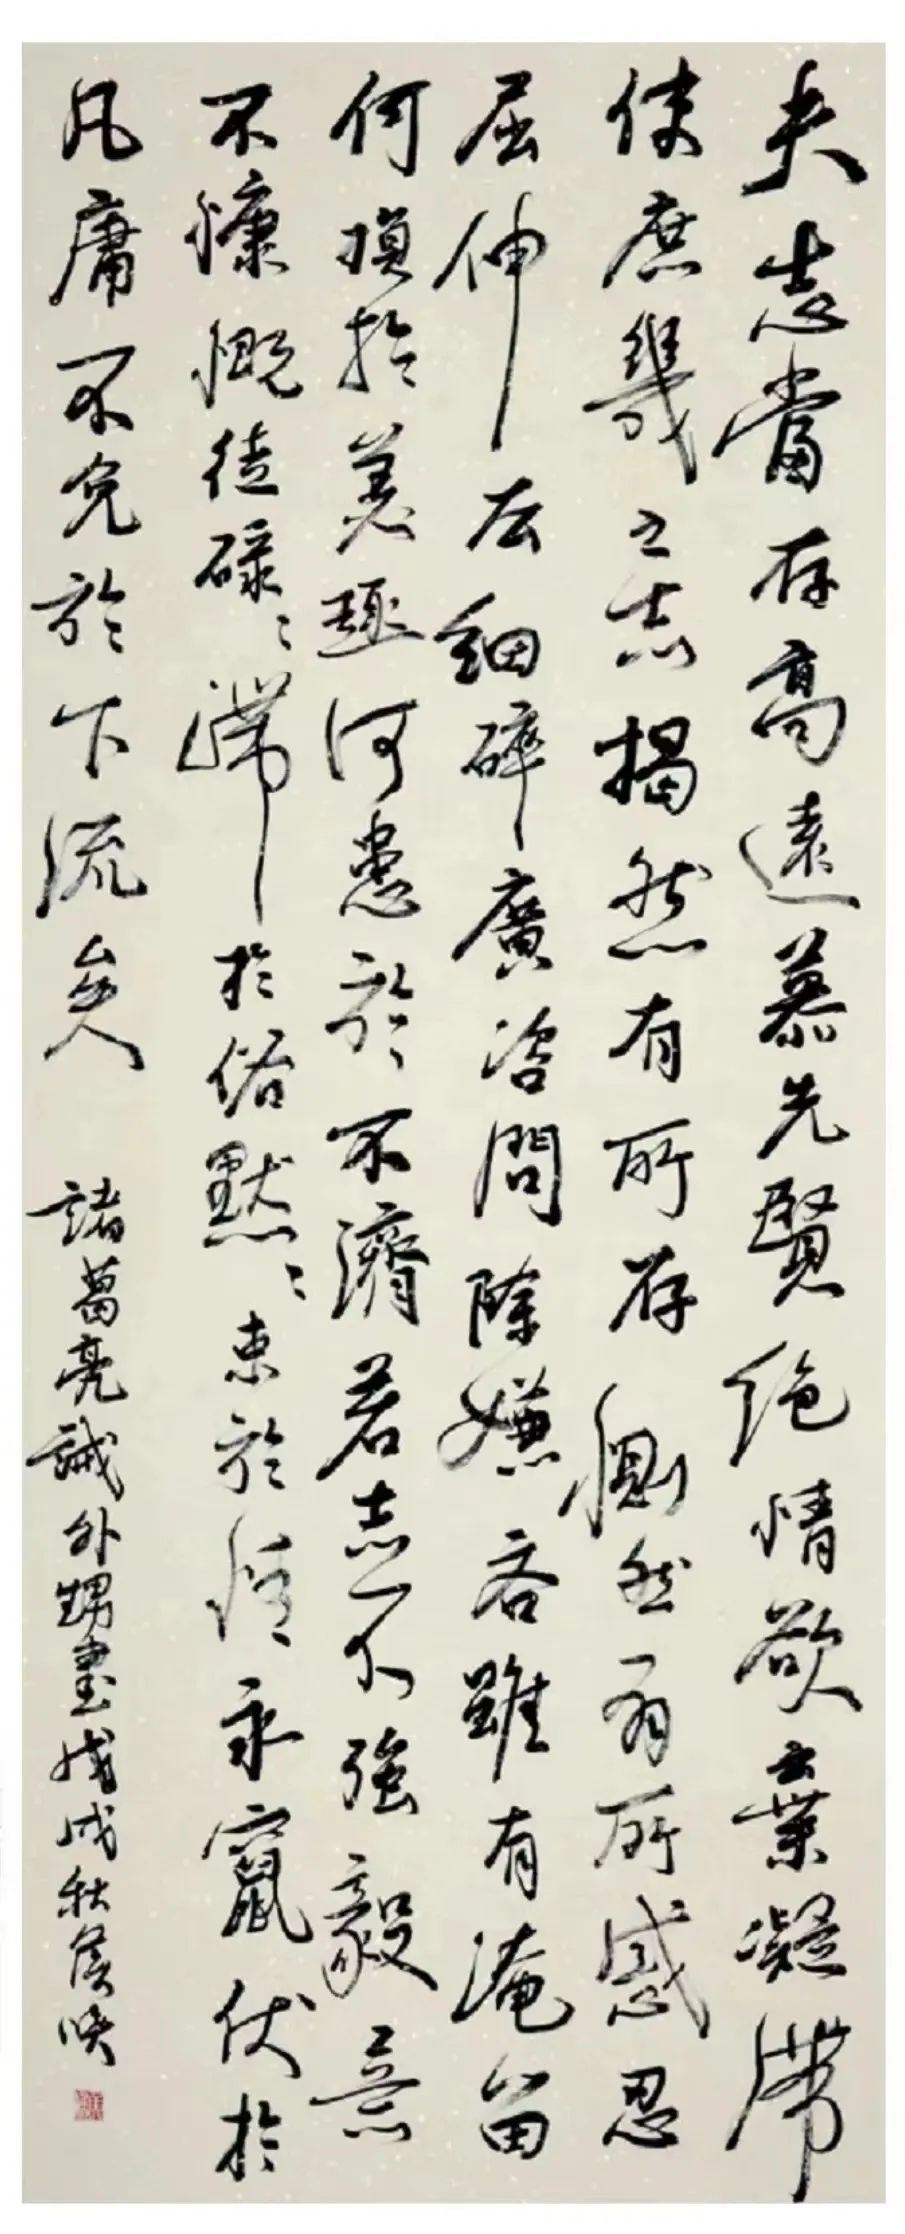 夫志當存高遠慕先賢絶情欲棄凝滯
使庶幾之志揭然有所存惻然有所感忍
屈伸去細碎廣咨問除嫌吝雖有淹留
何損於美趣何患於不濟若志不強毅意
不慷慨徒碌〻滯於俗默〻束於情永竄伏於
凡庸不免於下流矣 諸葛亮誡外甥書戊戌秋侯